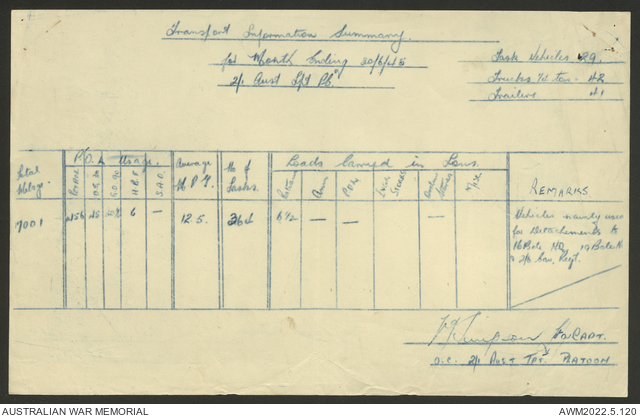 Transport Information Summary.
for Month Ending 30/6/45
2/1 Aust Tpt Pl.
Task Vehicles 29
Trucks ton - 42
Trailers 41
Total
P.O.L Usage.
Average
M.P.G.
No of
Tasks.
Loads Carried in Tons.
REMARKS.
S.A.D.
Ratns
Amn
P.O.L
Stores
Stores
7001
6
—
12.5.
364
6½
—
—
—
Vehicles mainly used
for Detachments to
16 Bde HQ, 19 Bde
& 2/6 Cav. Regt.
Simpson CAPT.
O.C. 2/1 AUST TPT PLATOON
AUSTRALIAN WAR MEMORIAL
AWM2022.5.120